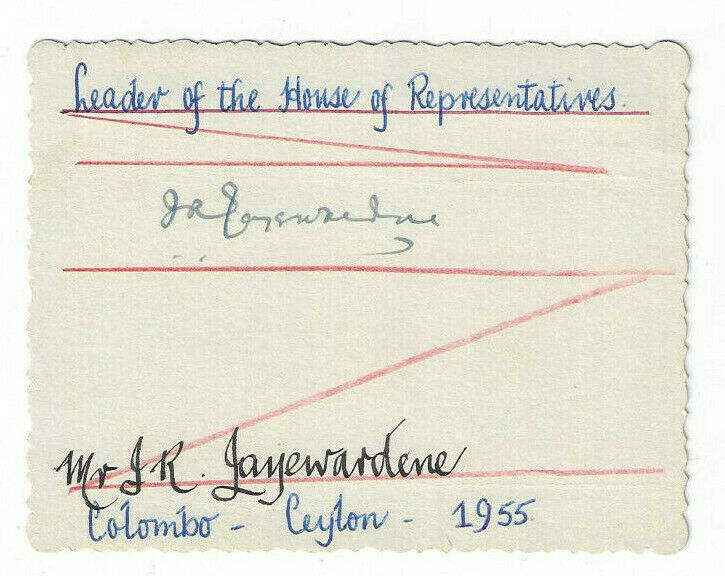 Leader of the House of Representatives.
J R Jayewardene
Mr J.R. Jayewardene
Colombo - Ceylon - 1955